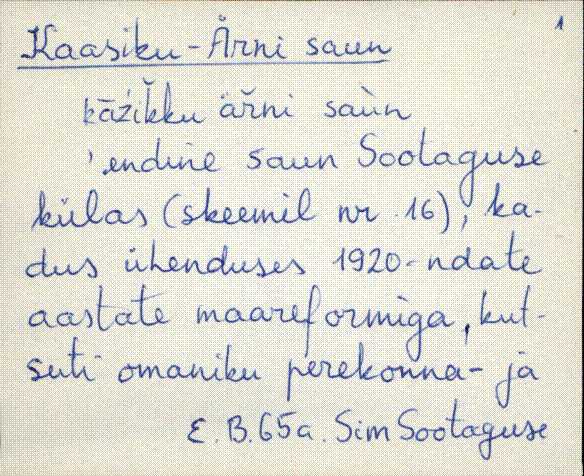 1
Kaasiku-Ärni saun
kāžikku äřni saùn
'endine saun Sootaguse
külas (skeemil nr 16), ka-
dus ühenduses 1920-ndate
aastate maareformiga, kut-
suti omaniku perekonna- ja
E.B.65a. Sim Sootaguse